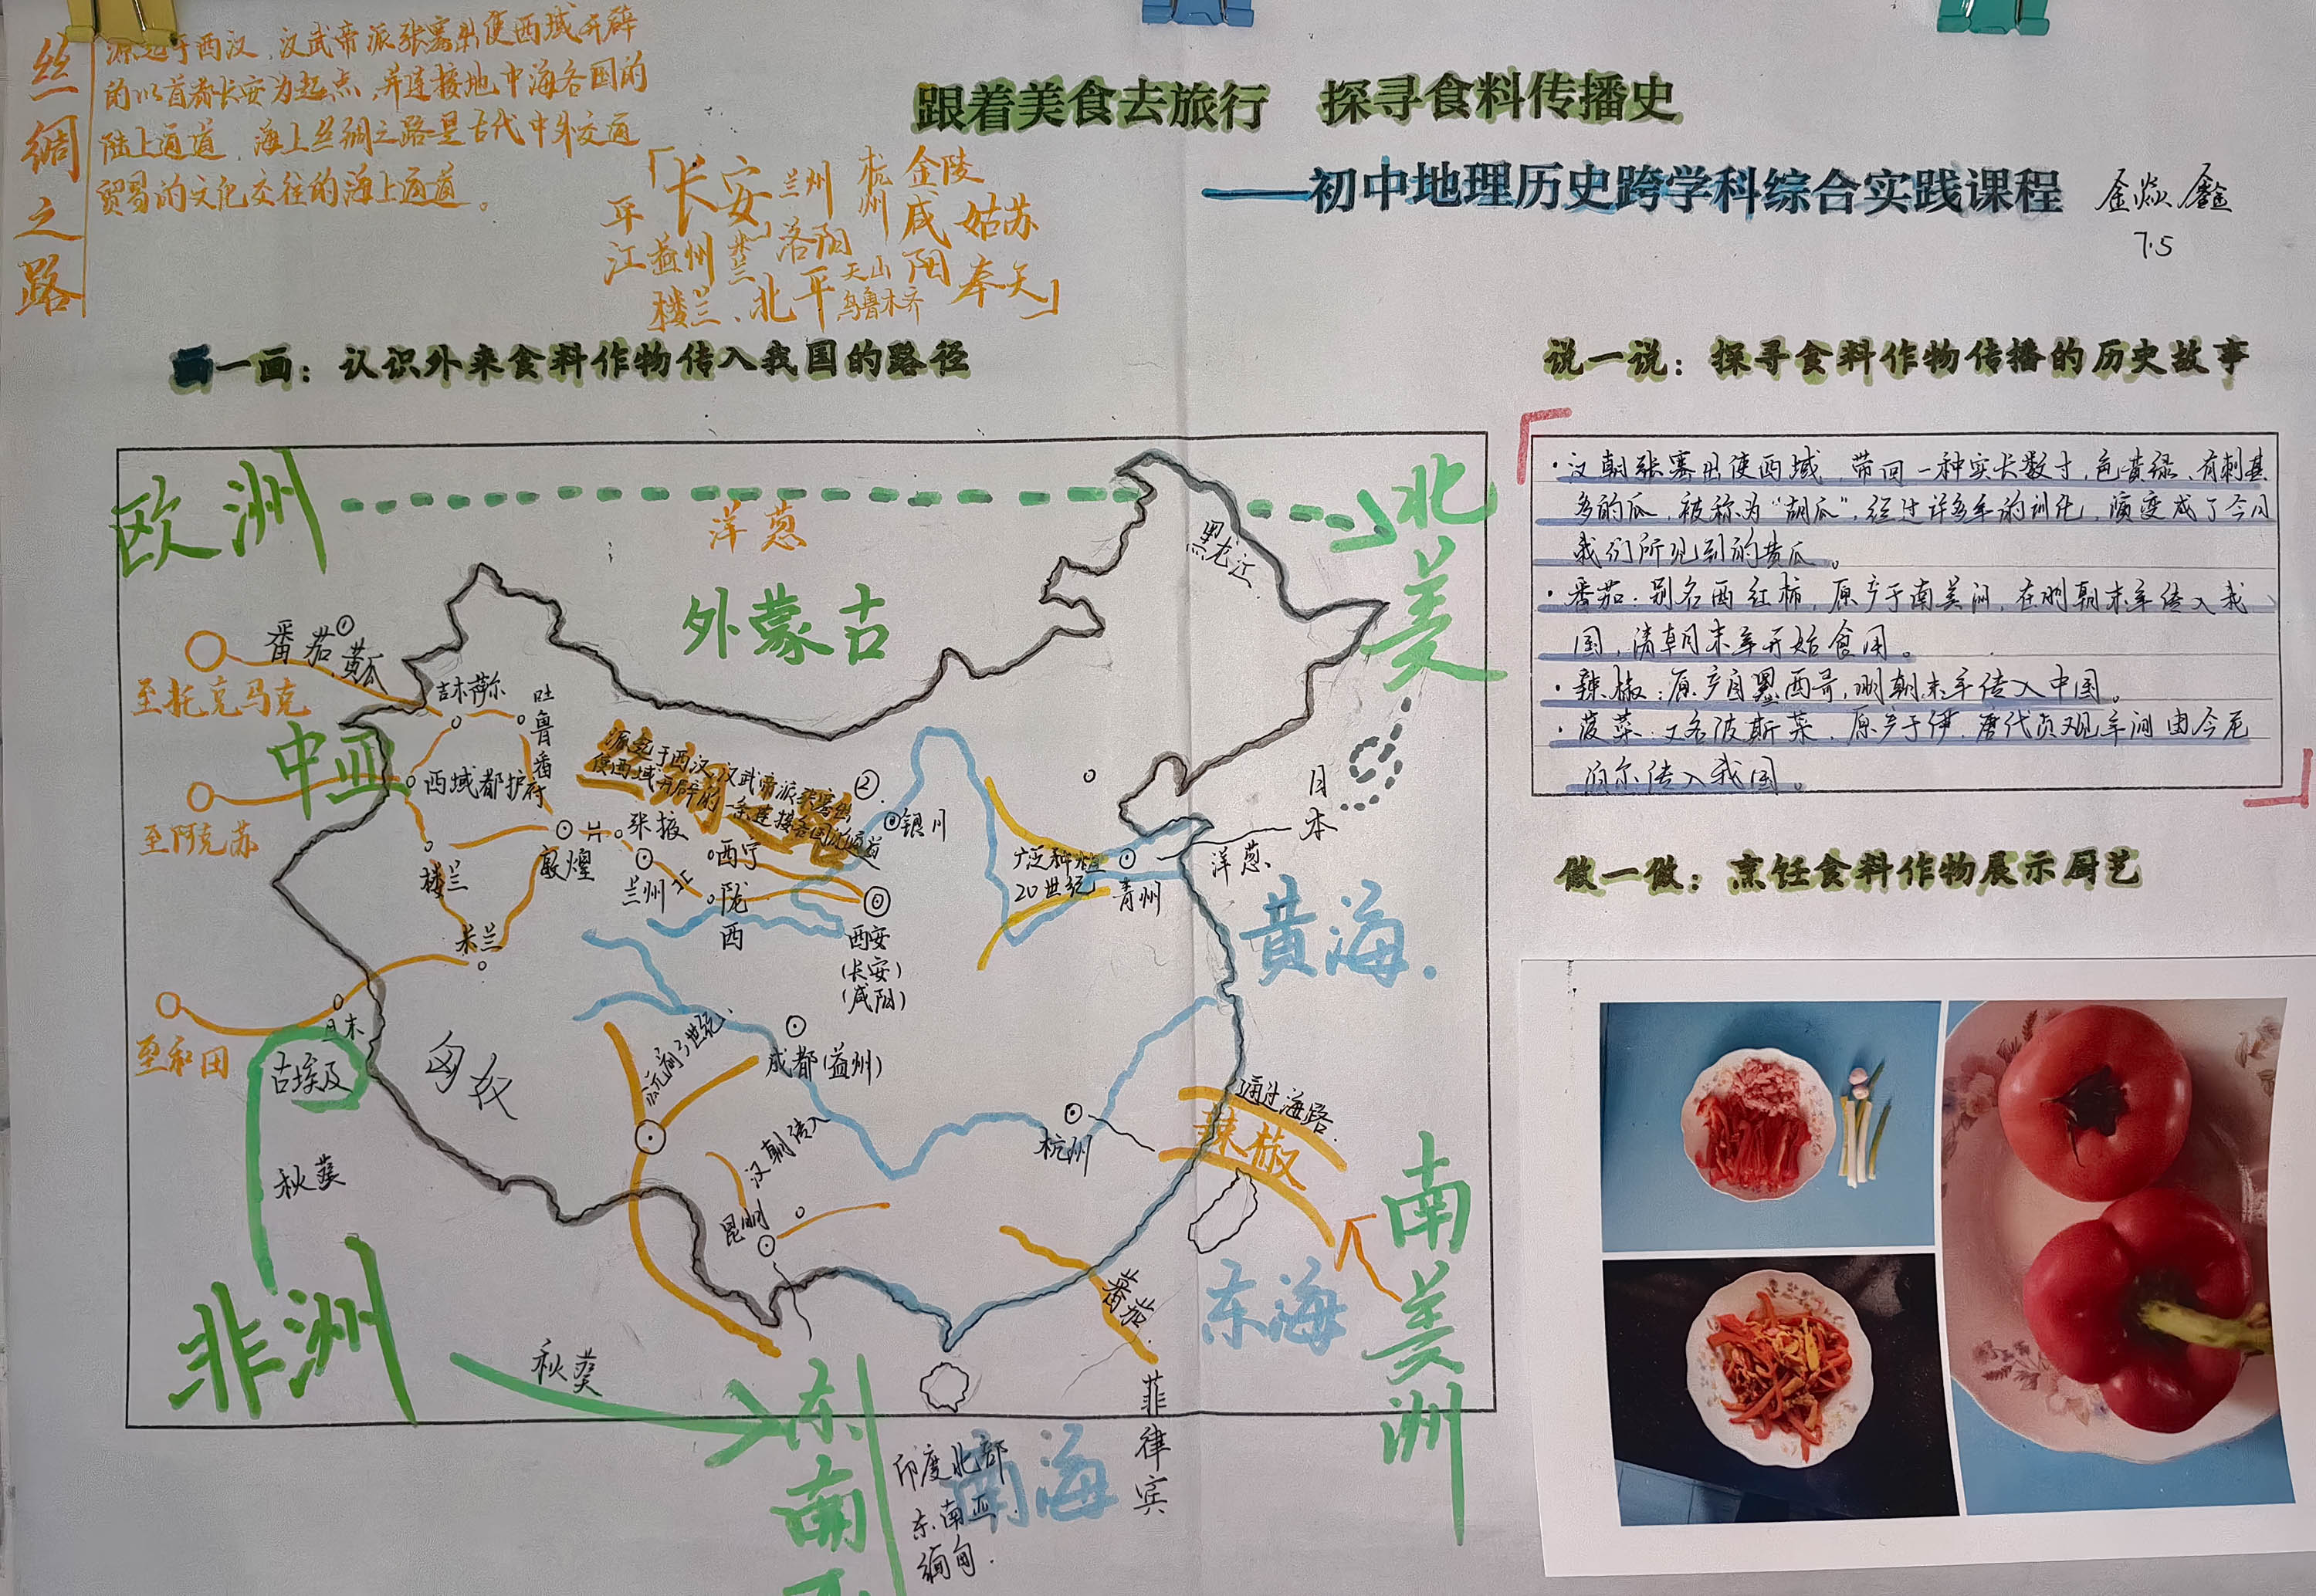 丝绸之路
源起于西汉，汉武帝派张骞出使西域开辟
的以首都长安为起点，并连接地中海各国的
陆上通道，海上丝绸之路是古代中外交通
贸易的文化交往的海上通道。
「长安 兰州 杭州 金陵
平江 益州 洛阳 咸阳 姑苏
楼兰、北平 天山 乌鲁木齐 奉天」
跟着美食去旅行 探寻食料传播史
——初中地理历史跨学科综合实践课程
7.5
画一画：认识外来食料作物传入我国的路径
欧洲
洋葱
北美
外蒙古
黑龙江
番茄
黄瓜
至托克马克
吉木萨尔
吐鲁番
中亚
西域都护府
至阿克苏
源起于西汉，汉武帝派张骞出
使西域开辟的一条连接各国的通道
②
银川
张掖
西宁
敦煌
兰州
陇西
楼兰
米兰
西安
(长安)
(咸阳)
广泛种植
20世纪
青州
洋葱
日本
黄海.
至和田
且末
古埃及
秋葵
公元前3世纪、
成都(益州)
汉朝传入
昆明
杭州
通过海路.
辣椒
南美洲
东海
番茄.
菲律宾
非洲
秋葵
东南
南海
印度北部
东南亚
缅甸.
说一说：探寻食料作物传播的历史故事
·汉朝张骞出使西域，带回一种实长数寸，色黄绿，有刺甚
多的瓜，被称为“胡瓜”，经过许多年的训化，演变成了今日
我们所见到的黄瓜。
·番茄：别名西红柿，原产于南美洲，在明朝末年传入我
国，清朝末年开始食用。
·辣椒：原产自墨西哥，明朝末年传入中国。
·菠菜：又名波斯菜，原产于伊，唐代贞观年间由今尼
泊尔传入我国。
做一做：烹饪食料作物展示厨艺